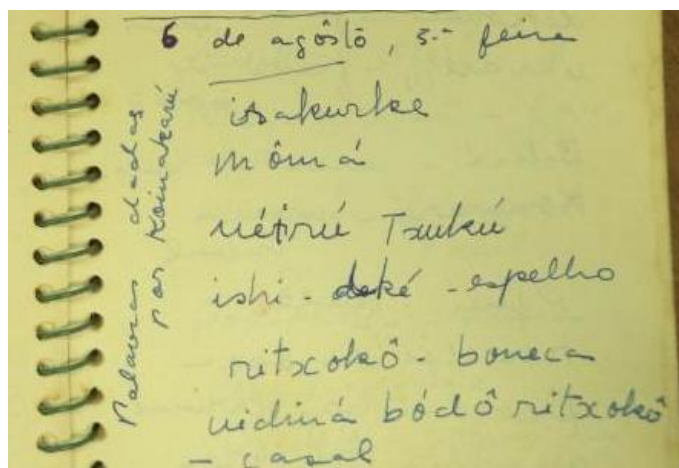 6 de agôsto, 5.ª feira
Palavras dadas
por Koinakarú
isakurke
mômá
uétirú Txukú
ishi - deké - espelho
ritxokô - boneca
uidiná bódô ritxokô
- casal